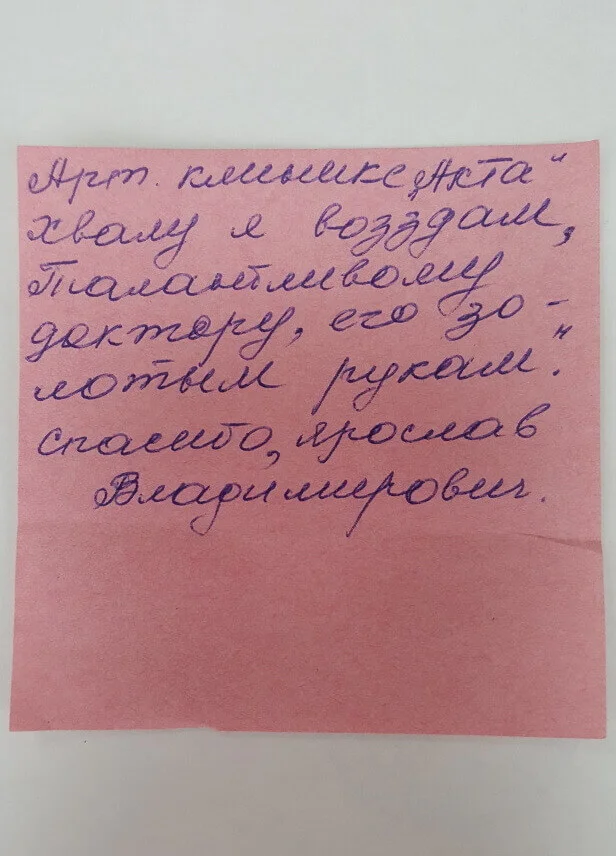 Арт. клинике „Акта"
хвалу я возздам,
Талантливому
доктору, его зо-
лотым рукам."
спасибо, Ярослав
Владимирович.